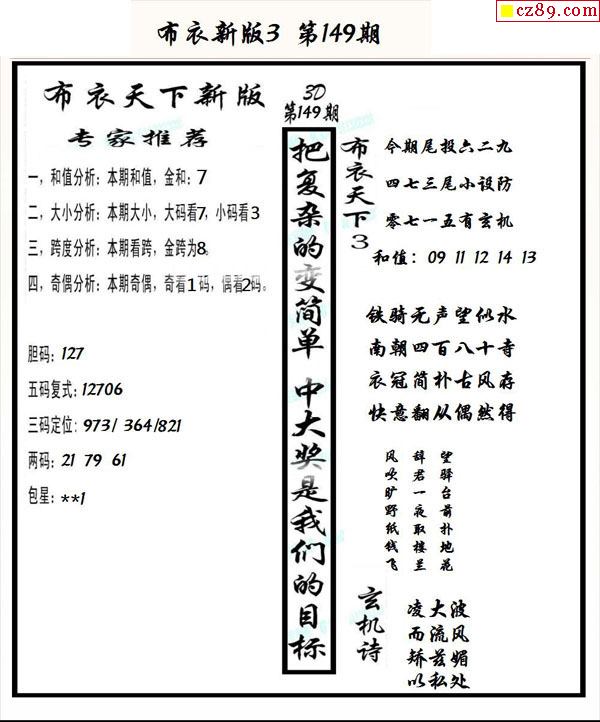 cz89.com
布衣新版3 第149期
布衣天下新版
专家推荐
一，和值分析：本期和值，金和：7
二，大小分析：本期大小，大码看7，小码看3
三，跨度分析：本期看跨，金跨为8。
四，奇偶分析：本期奇偶，奇看1码，偶看2码。
胆码：127
五码复式：12706
三码定位：973/ 364/821
两码：21 79 61
包星：**1
3D
第149期
把复杂的变简单 中大奖是我们的目标
布衣天下3
今期尾投六二九
四七三尾小设防
零七一五有玄机
和值：09 11 12 14 13
铁骑无声望似水
南朝四百八十寺
衣冠简朴古风存
快意翻从偶然得
望驿台前扑地花
辞君一夜取楼兰
风吹旷野纸钱飞
玄机诗
凌大波
而流风
矫兹媚
以私处